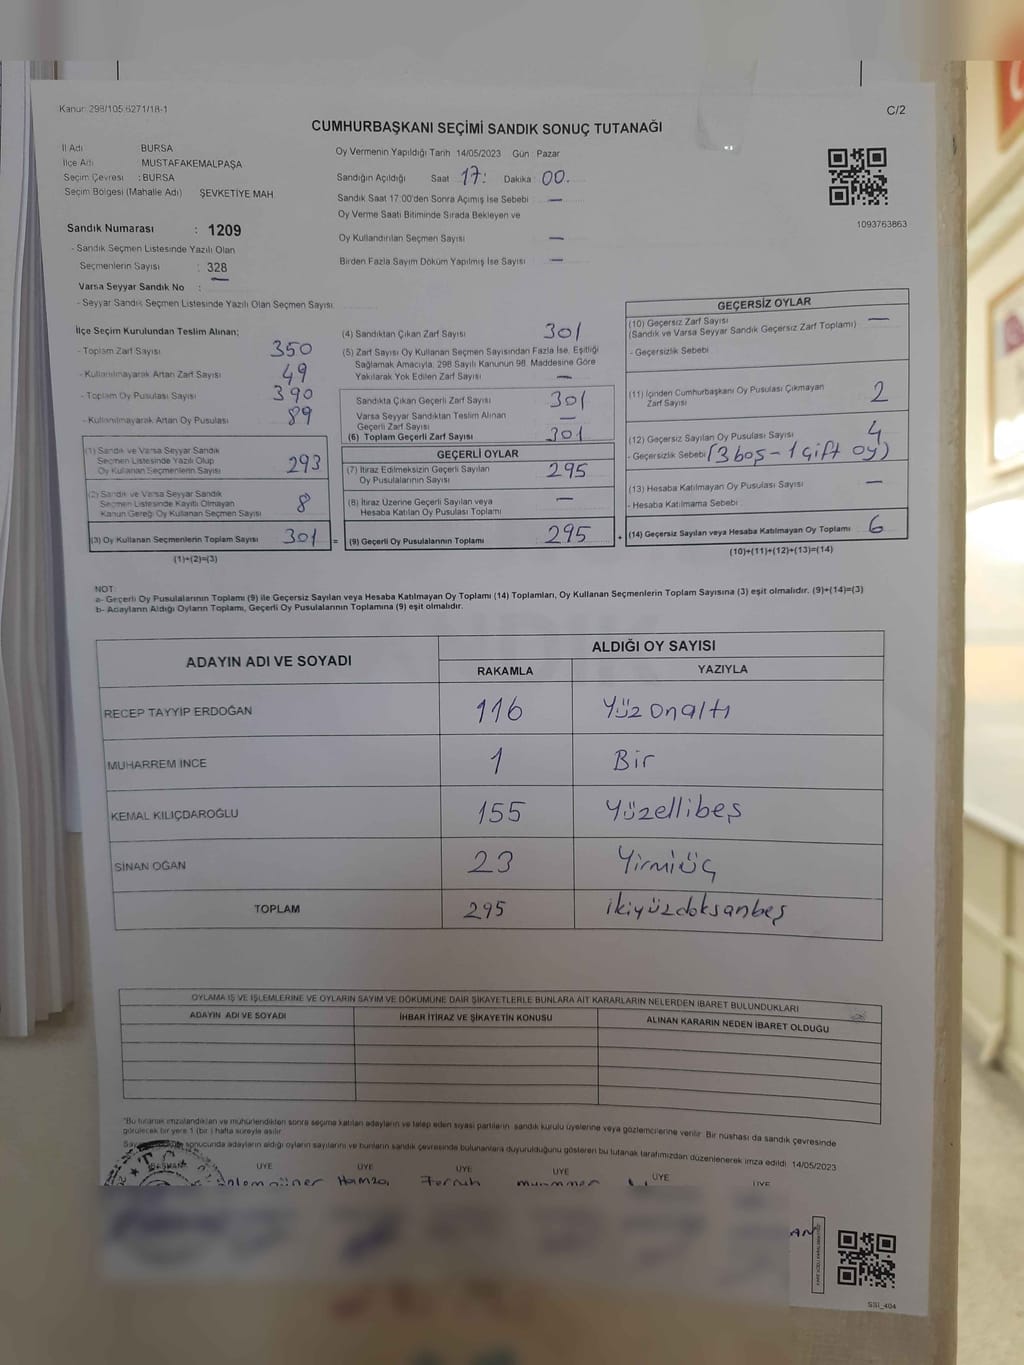 Kanun: 298/105,6271/18-1
C/2
CUMHURBAŞKANI SEÇİMİ SANDIK SONUÇ TUTANAĞI
İl Adı BURSA
İlçe Adı MUSTAFAKEMALPAŞA
Seçim Çevresi : BURSA
Seçim Bölgesi (Mahalle Adı) ŞEVKETİYE MAH.
Oy Vermenin Yapıldığı Tarih 14/05/2023 Gün Pazar
Sandığın Açıldığı Saat 17: Dakika 00.
Sandık Saat 17:00'den Sonra Açımış İse Sebebi —
Oy Verme Saati Bitiminde Sırada Bekleyen ve
Oy Kullandırılan Seçmen Sayısı —
Birden Fazla Sayım Döküm Yapılmış İse Sayısı —
1093763863
Sandık Numarası : 1209
- Sandık Seçmen Listesinde Yazılı Olan
Seçmenlerin Sayısı : 328
Varsa Seyyar Sandık No : —
- Seyyar Sandık Seçmen Listesinde Yazılı Olan Seçmen Sayısı:
İlçe Seçim Kurulundan Teslim Alınan;
- Toplam Zarf Sayısı 350
- Kullanılmayarak Artan Zarf Sayısı 49
- Toplam Oy Pusulası Sayısı 390
- Kullanılmayarak Artan Oy Pusulası 89
(1) Sandık ve Varsa Seyyar Sandık
Seçmen Listesinde Yazılı Olup
Oy Kullanan Seçmenlerin Sayısı 293
(2) Sandık ve Varsa Seyyar Sandık
Seçmen Listesinde Kayıtlı Olmayan
Kanun Gereği Oy Kullanan Seçmen Sayısı 8
(3) Oy Kullanan Seçmenlerin Toplam Sayısı 301 =
(1)+(2)=(3)
(4) Sandıktan Çıkan Zarf Sayısı 301
(5) Zarf Sayısı Oy Kullanan Seçmen Sayısından Fazla İse, Eşitliği
Sağlamak Amacıyla, 298 Sayılı Kanunun 98. Maddesine Göre
Yakılarak Yok Edilen Zarf Sayısı —
Sandıkta Çıkan Geçerli Zarf Sayısı 301
Varsa Seyyar Sandıktan Teslim Alınan
Geçerli Zarf Sayısı —
(6) Toplam Geçerli Zarf Sayısı 301
GEÇERLİ OYLAR
(7) İtiraz Edilmeksizin Geçerli Sayılan
Oy Pusulalarının Sayısı 295
(8) İtiraz Üzerine Geçerli Sayılan veya
Hesaba Katılan Oy Pusulası Toplamı —
(9) Geçerli Oy Pusulalarının Toplamı 295 +
GEÇERSİZ OYLAR
(10) Geçersiz Zarf Sayısı —
(Sandık ve Varsa Seyyar Sandık Geçersiz Zarf Toplamı)
- Geçersizlik Sebebi
(11) İçinden Cumhurbaşkanı Oy Pusulası Çıkmayan
Zarf Sayısı 2
(12) Geçersiz Sayılan Oy Pusulası Sayısı 4
- Geçersizlik Sebebi (3 boş - 1 çift oy)
(13) Hesaba Katılmayan Oy Pusulası Sayısı —
- Hesaba Katılmama Sebebi
(14) Geçersiz Sayılan veya Hesaba Katılmayan Oy Toplamı 6
(10)+(11)+(12)+(13)=(14)
NOT:
a- Geçerli Oy Pusulalarının Toplamı (9) ile Geçersiz Sayılan veya Hesaba Katılmayan Oy Toplamı (14) Toplamları, Oy Kullanan Seçmenlerin Toplam Sayısına (3) eşit olmalıdır. (9)+(14)=(3)
b- Adayların Aldığı Oyların Toplamı, Geçerli Oy Pusulalarının Toplamına (9) eşit olmalıdır.
ADAYIN ADI VE SOYADI ALDIĞI OY SAYISI
RAKAMLA YAZIYLA
RECEP TAYYİP ERDOĞAN 116 Yüzonaltı
MUHARREM İNCE 1 Bir
KEMAL KILIÇDAROĞLU 155 Yüzellibeş
SİNAN OĞAN 23 Yirmiüç
TOPLAM 295 ikiyüzdoksanbeş
OYLAMA İŞ VE İŞLEMLERİNE VE OYLARIN SAYIM VE DÖKÜMÜNE DAİR ŞİKAYETLERLE BUNLARA AİT KARARLARIN NELERDEN İBARET BULUNDUKLARI
ADAYIN ADI VE SOYADI İHBAR İTİRAZ VE ŞİKAYETİN KONUSU ALINAN KARARIN NEDEN İBARET OLDUĞU
*Bu tutanak imzalandıktan ve mühürlendikten sonra seçime katılan adayların ve talep eden siyasi partilerin sandık kurulu üyelerine veya gözlemcilerine verilir. Bir nüshası da sandık çevresinde
görülecek bir yere 1 (bir) hafta süreyle asılır.
sonucunda adayların aldığı oyların sayılarını ve bunların sandık çevresinde bulunanlara duyurulduğunu gösteren bu tutanak tarafımızdan düzenlenerek imza edildi. 14/05/2023
T.C.
ÜYE ÜYE ÜYE ÜYE ÜYE ÜYE
Hamza Ferruh
SSI_404